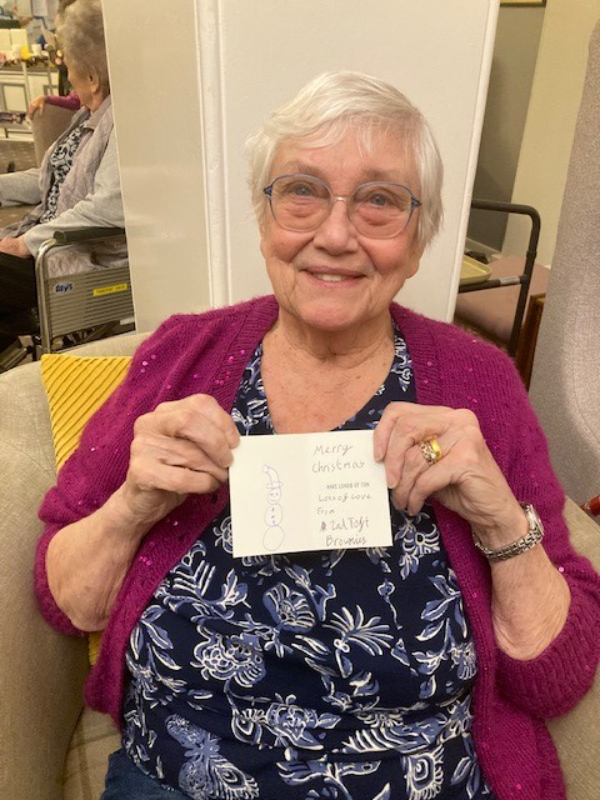 Merry
Christmas
HAVE LOADS OF FUN
Lots of Love
From
2nd Toft
Brownies
days